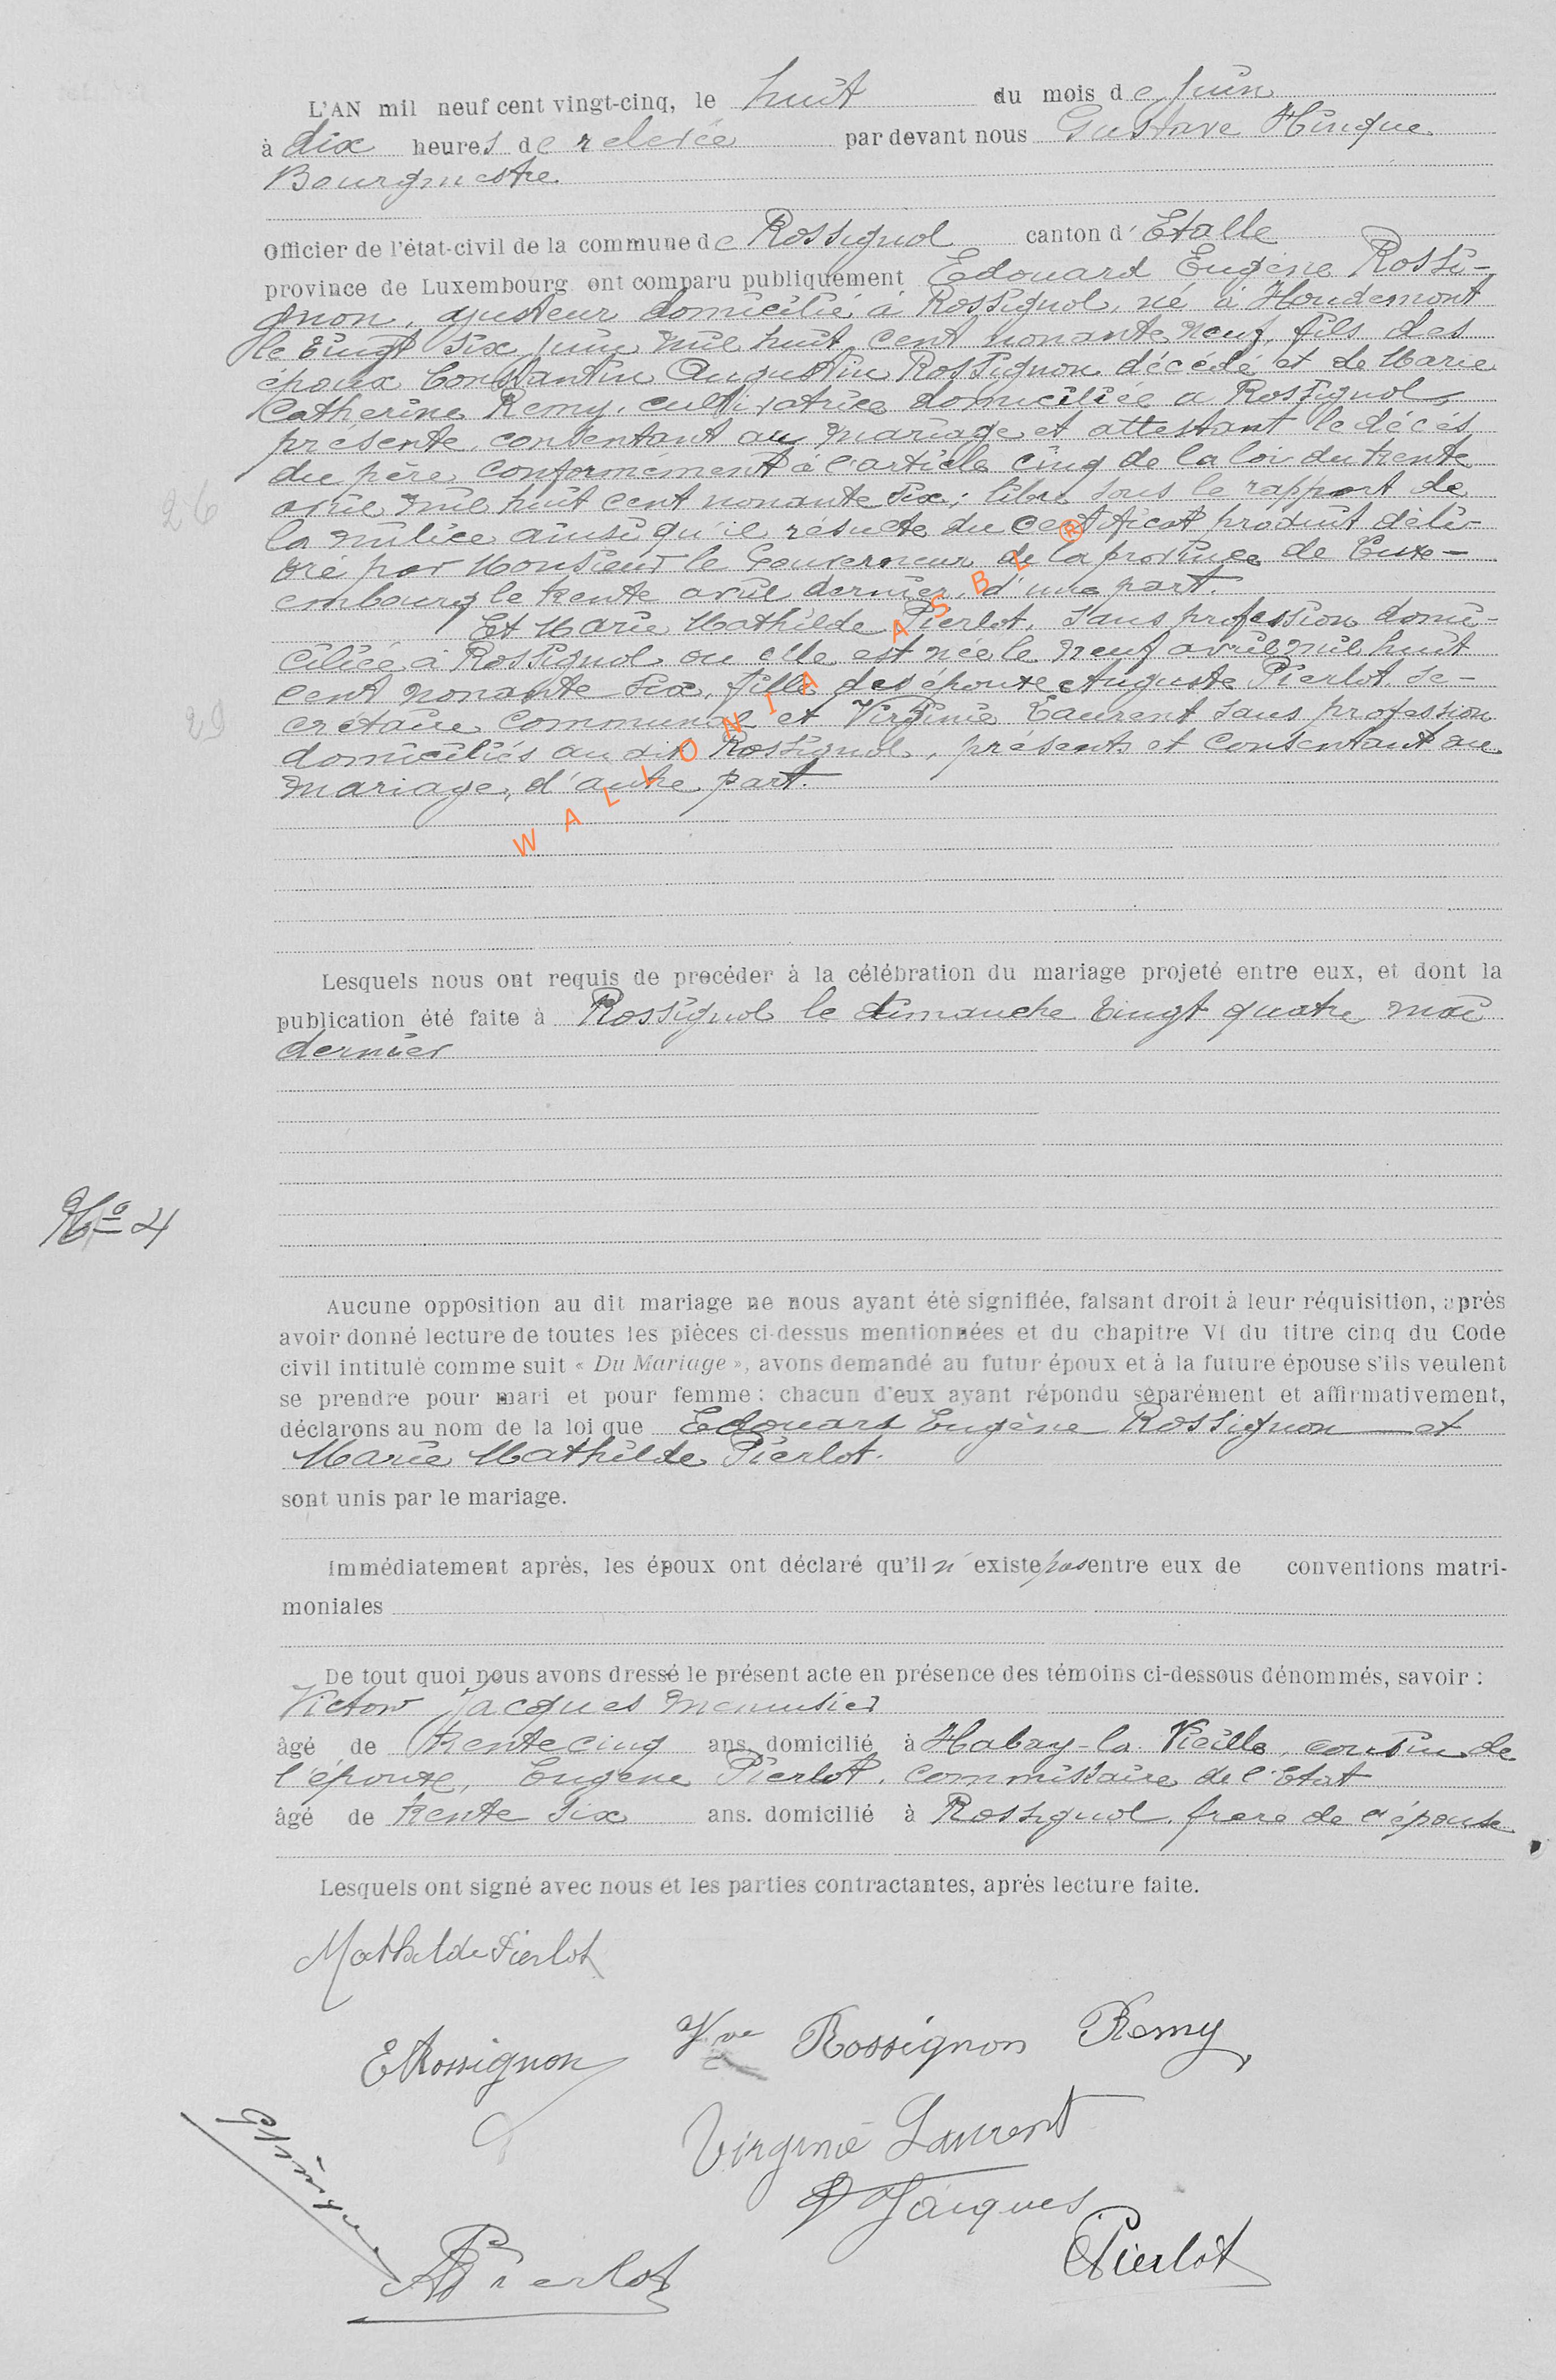 L'AN mil neuf cent vingt-cinq, le huit du mois de Juin
à dix heures de relevée par devant nous Gustave Hinque
Bourgmestre.
Officier de l'état-civil de la commune de Rossignol canton d'Etalle
province de Luxembourg ont comparu publiquement Edouard Eugène Rossi-
gnon, ajusteur domicilié à Rossignol, né à Houdemont
le vingt six juin mil huit cent nonante neuf, fils des
époux Constantin Augustin Rossignon décédé et de Marie
Catherine Remy, cultivatrice domiciliée a Rossignol,
présente, consentant au mariage et attestant le décès
du père conformément à l'article cinq de la loi du trente
26
avril mil huit cent nonante six; libre sous le rapport de
la milice ainsi qu'il résulte du certificat produit déli-
vré par Monsieur le Gouverneur de la province de Luxe-
embourg le trente avril dernier, d'une part.
Et Marie Mathilde Pierlot, sans profession domi-
ciliée à Rossignol ou elle est née le neuf avril mil huit
cent nonante six, fille des époux Auguste Pierlot, se-
29
cretaire communal et Virginie Laurent sans profession
domiciliés au dit Rossignol, présents et consentant au
mariage, d'autre part.
WALLONIA ASBL ®
Lesquels nous ont requis de procéder à la célébration du mariage projeté entre eux, et dont la
publication été faite à Rossignol le dimanche vingt quatre mai
dernier
No 4
Aucune opposition au dit mariage ne nous ayant été signifiée, faisant droit à leur réquisition, après
avoir donné lecture de toutes les pièces ci-dessus mentionnées et du chapitre VI du titre cinq du Code
civil intitulé comme suit « Du Mariage », avons demandé au futur époux et à la future épouse s'ils veulent
se prendre pour mari et pour femme : chacun d'eux ayant répondu séparément et affirmativement,
déclarons au nom de la loi que Edouard Eugène Rossignon et
Marie Mathilde Pierlot.
sont unis par le mariage.
Immédiatement après, les époux ont déclaré qu'il n'existe pas entre eux de conventions matri-
moniales
De tout quoi nous avons dressé le présent acte en présence des témoins ci-dessous dénommés, savoir :
Victor Jacques menuisier
âgé de trente cinq ans, domicilié à Habay-la-Vieille, cousin de
l'épouse, Eugène Pierlot, commissaire de l'Etat
âgé de trente six ans. domicilié à Rossignol, frere de l'épouse
Lesquels ont signé avec nous et les parties contractantes, après lecture faite.
Mathilde Pierlot
E Rossignon Vve Rossignon Remy
Virginie Laurent
GHinque
V Jacques
A Pierlot
E Pierlot